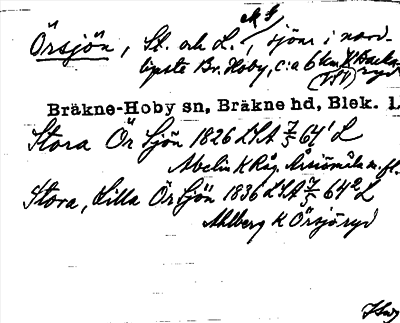 Örsjön, St. och L., sjöar i nord-
ligste Br. Hoby, c:a 6 km V Backa-
ryd
Bräkne-Hoby sn, Bräkne hd, Blek. l.
Stora Ör Sjön 1826 LSA 64¹ L
Abelin K Råg. Örsiömåla m. fl.
Stora, Lilla Ör Sjön 1836 LSA 64² L
Ahlberg K Örsjöryd